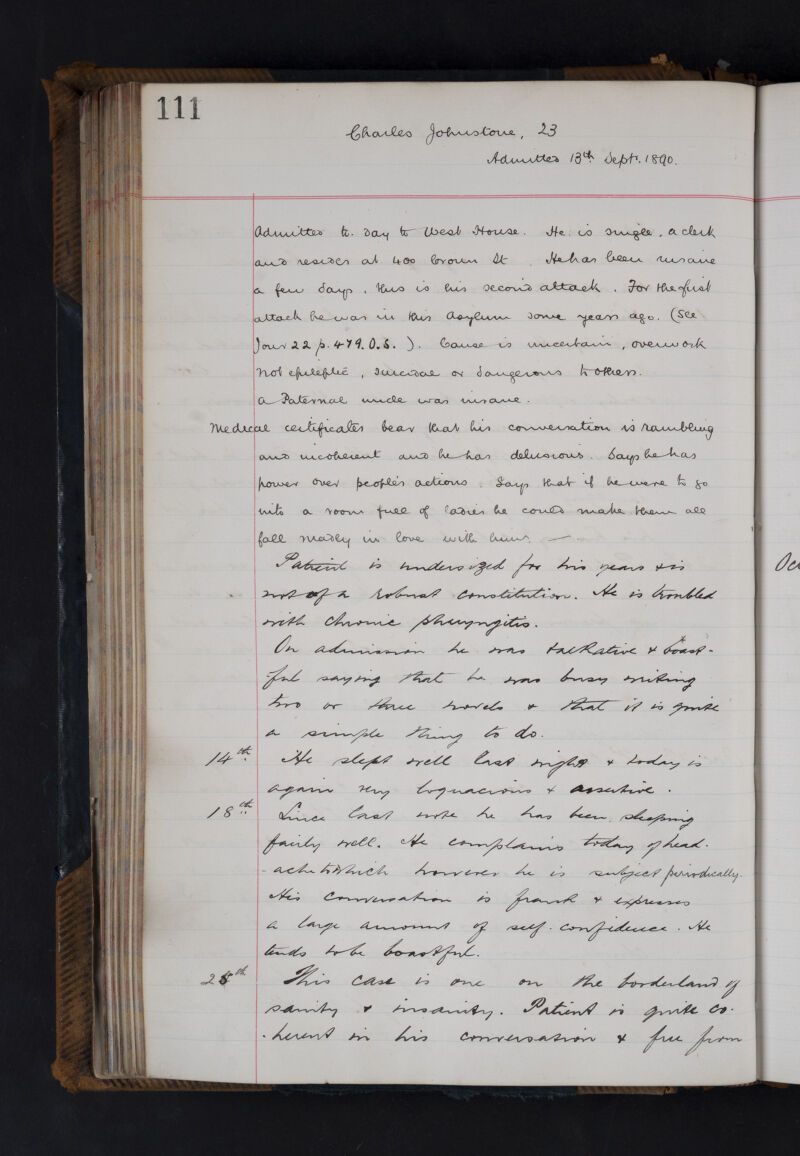 111
Charles Johnstone, 23
Admitted 13th Sept. 1890.
Admitted to-day to West House. He is single, a clerk
and resides at 400 Brown St. He has been insane
a few days, this is his second attack. For the first
attack he was in this Asylum some years ago. (See
Jour 22 p. 479. O.S.). Cause is uncertain, overwork
not epileptic, suicidal or dangerous to others.
a Paternal uncle was insane.
Medical certificates bear that his conversation is rambling
and incoherent and he has delusions. Says he has
power over people's actions. Says that if he were to go
into a room full of ladies he could make them all
fall madly in love with him. —
Patient is undersized for his years & is
not of a robust constitution. He is troubled
with chronic pharyngitis.
On admission he was talkative & boast-
ful saying that he was busy writing
two or three novels & that it is quite
a simple thing to do.
14th. He slept well last night & today is
again very loquacious & assertive.
18th. Since last note he has been sleeping
fairly well. He complains today of head-
-ache to which however he is subject periodically.
His conversation is frank & expresses
a large amount of self-confidence. He
tends to be boastful.
25th This case is one on the borderland of
sanity & insanity. Patient is quite co-
-herent in his conversation & free from